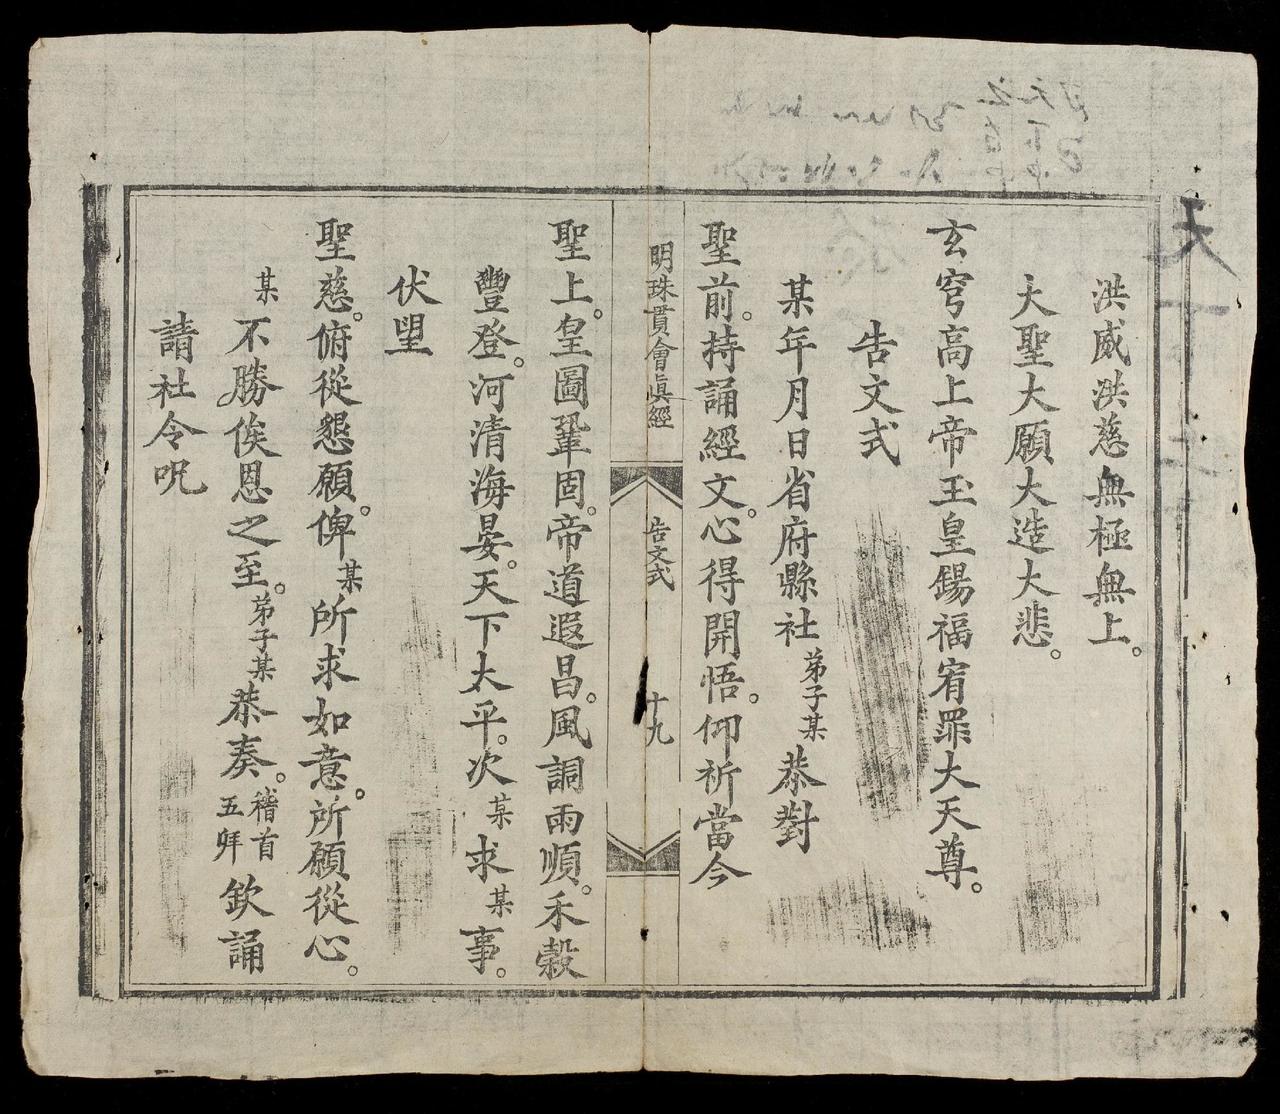 洪威洪慈無極無上。
大聖大願大造大悲。
玄穹高上帝玉皇錫福宥罪大天尊。
告文式
某年月日省府縣社弟子某恭對
聖前。持誦經文。心得開悟。仰祈當今
明珠貫會眞經
告文式
十九
聖上。皇圖鞏固。帝道遐昌。風調雨順。禾穀
豐登。河清海晏。天下太平。次某求某事。
伏望
聖慈。俯從懇願。俾某所求如意。所願從心。
某不勝俟恩之至。弟子某恭奏。稽首五拜欽誦
請社令呪
天